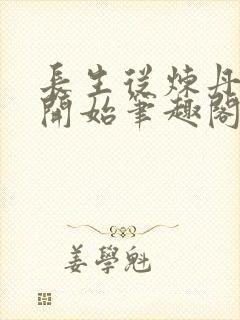 長生從煉丹
開始筆趣閣
姜學魁